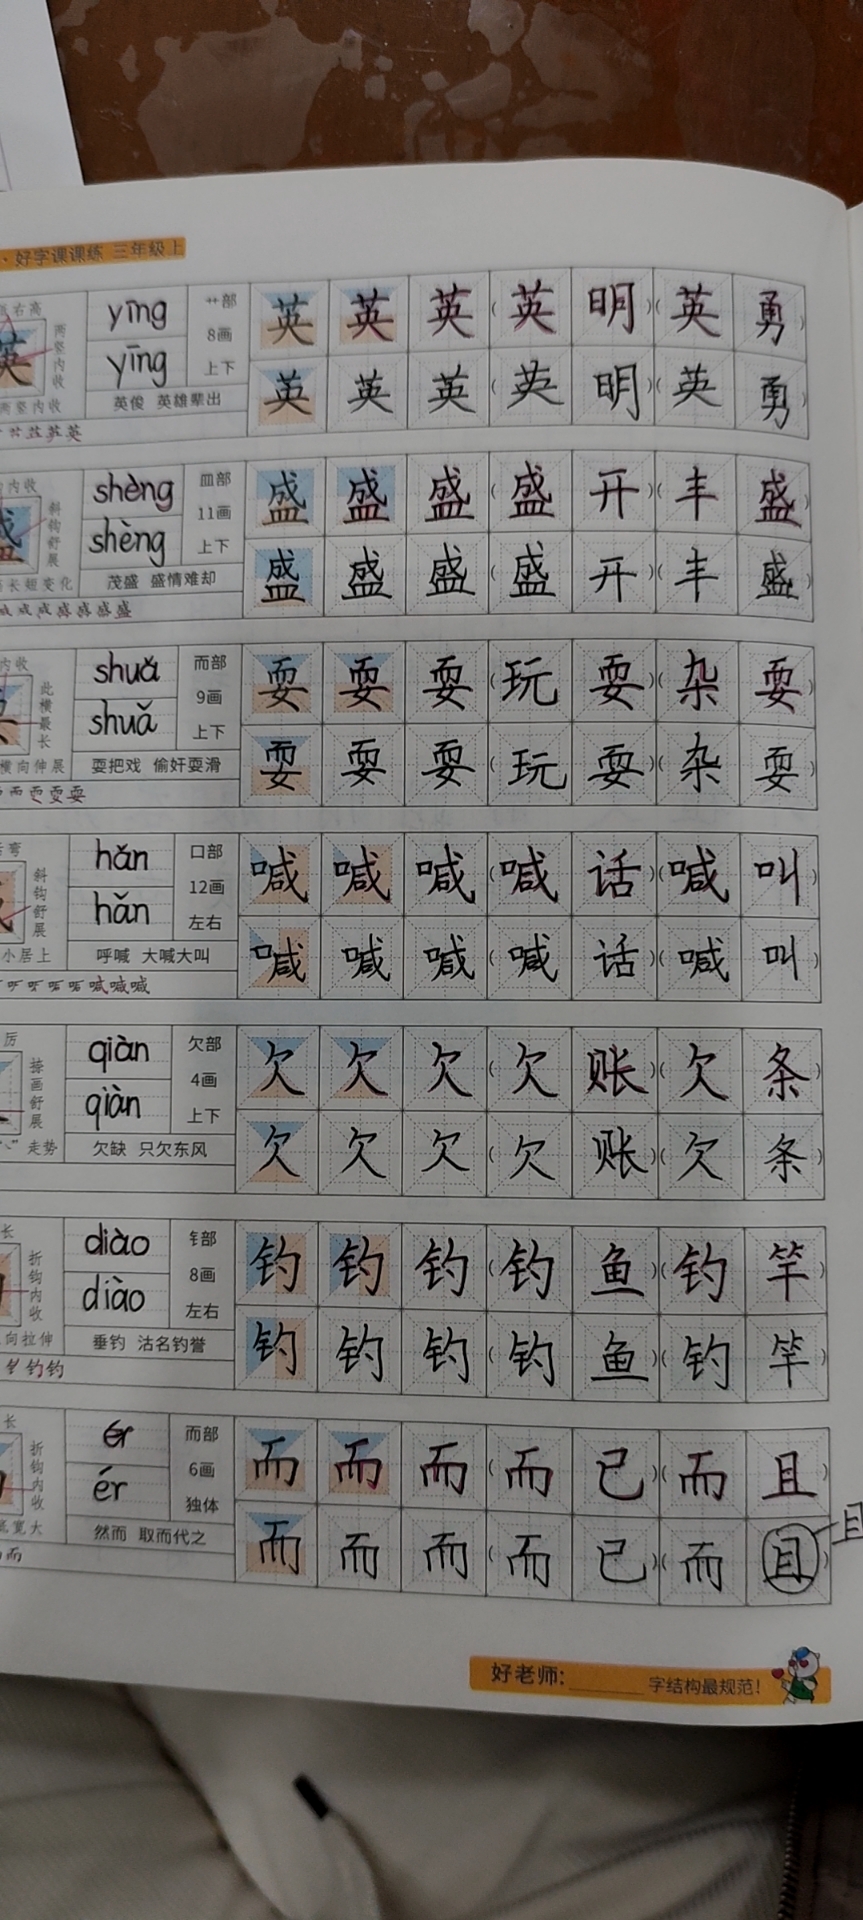 ·好字课课练 三年级上
右高
yīng 艹部 英 英 英 (英 明)(英 勇
两竖内收 8画
yīng 上下 英 英 英 (英 明)(英 勇)
两竖内收 英俊 英雄辈出
内收
shèng 皿部 盛 盛 盛 (盛 开)(丰 盛)
斜钩舒展 11画
shèng 上下 盛 盛 盛 (盛 开)(丰 盛)
长短变化 茂盛 盛情难却
内收
shuǎ 而部 耍 耍 耍 (玩 耍)(杂 耍)
此横最长 9画
shuǎ 上下 耍 耍 耍 (玩 耍)(杂 耍)
横向伸展 耍把戏 偷奸耍滑
弯
hǎn 口部 喊 喊 喊 (喊 话)(喊 叫)
斜钩舒展 12画
hǎn 左右 喊 喊 喊 (喊 话)(喊 叫)
小居上 呼喊 大喊大叫
厉
qiàn 欠部 欠 欠 欠 (欠 账)(欠 条)
捺画舒展 4画
qiàn 上下 欠 欠 欠 (欠 账)(欠 条)
走势 欠缺 只欠东风
长
diào 钅部 钓 钓 钓 (钓 鱼)(钓 竿)
折钩内收 8画
diào 左右 钓 钓 钓 (钓 鱼)(钓 竿)
向拉伸 垂钓 沽名钓誉
长
ér 而部 而 而 而 (而 已)(而 且)
折钩内收 6画
ér 独体 而 而 而 (而 已)(而 且) 且
宽大 然而 取而代之
好老师:________字结构最规范!